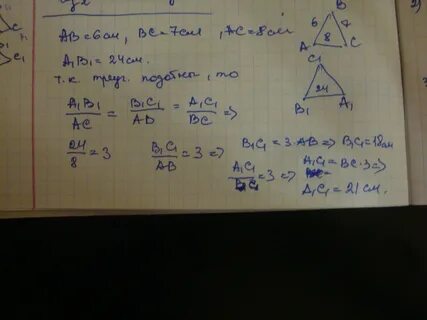 AB=6см, BC=7см, AC=8см
A₁B₁=24см.
т.к. треуг. подобны, то
A₁B₁/AC = B₁C₁/AB = A₁C₁/BC =>
24/8=3 B₁C₁/AB=3=> B₁C₁=3·AB=> B₁C₁=18см
A₁C₁/=3=> A₁C₁=BC·3=>
A₁C₁=21см.
B
6 7
8
A C
C₁
24
B₁ A₁
2)